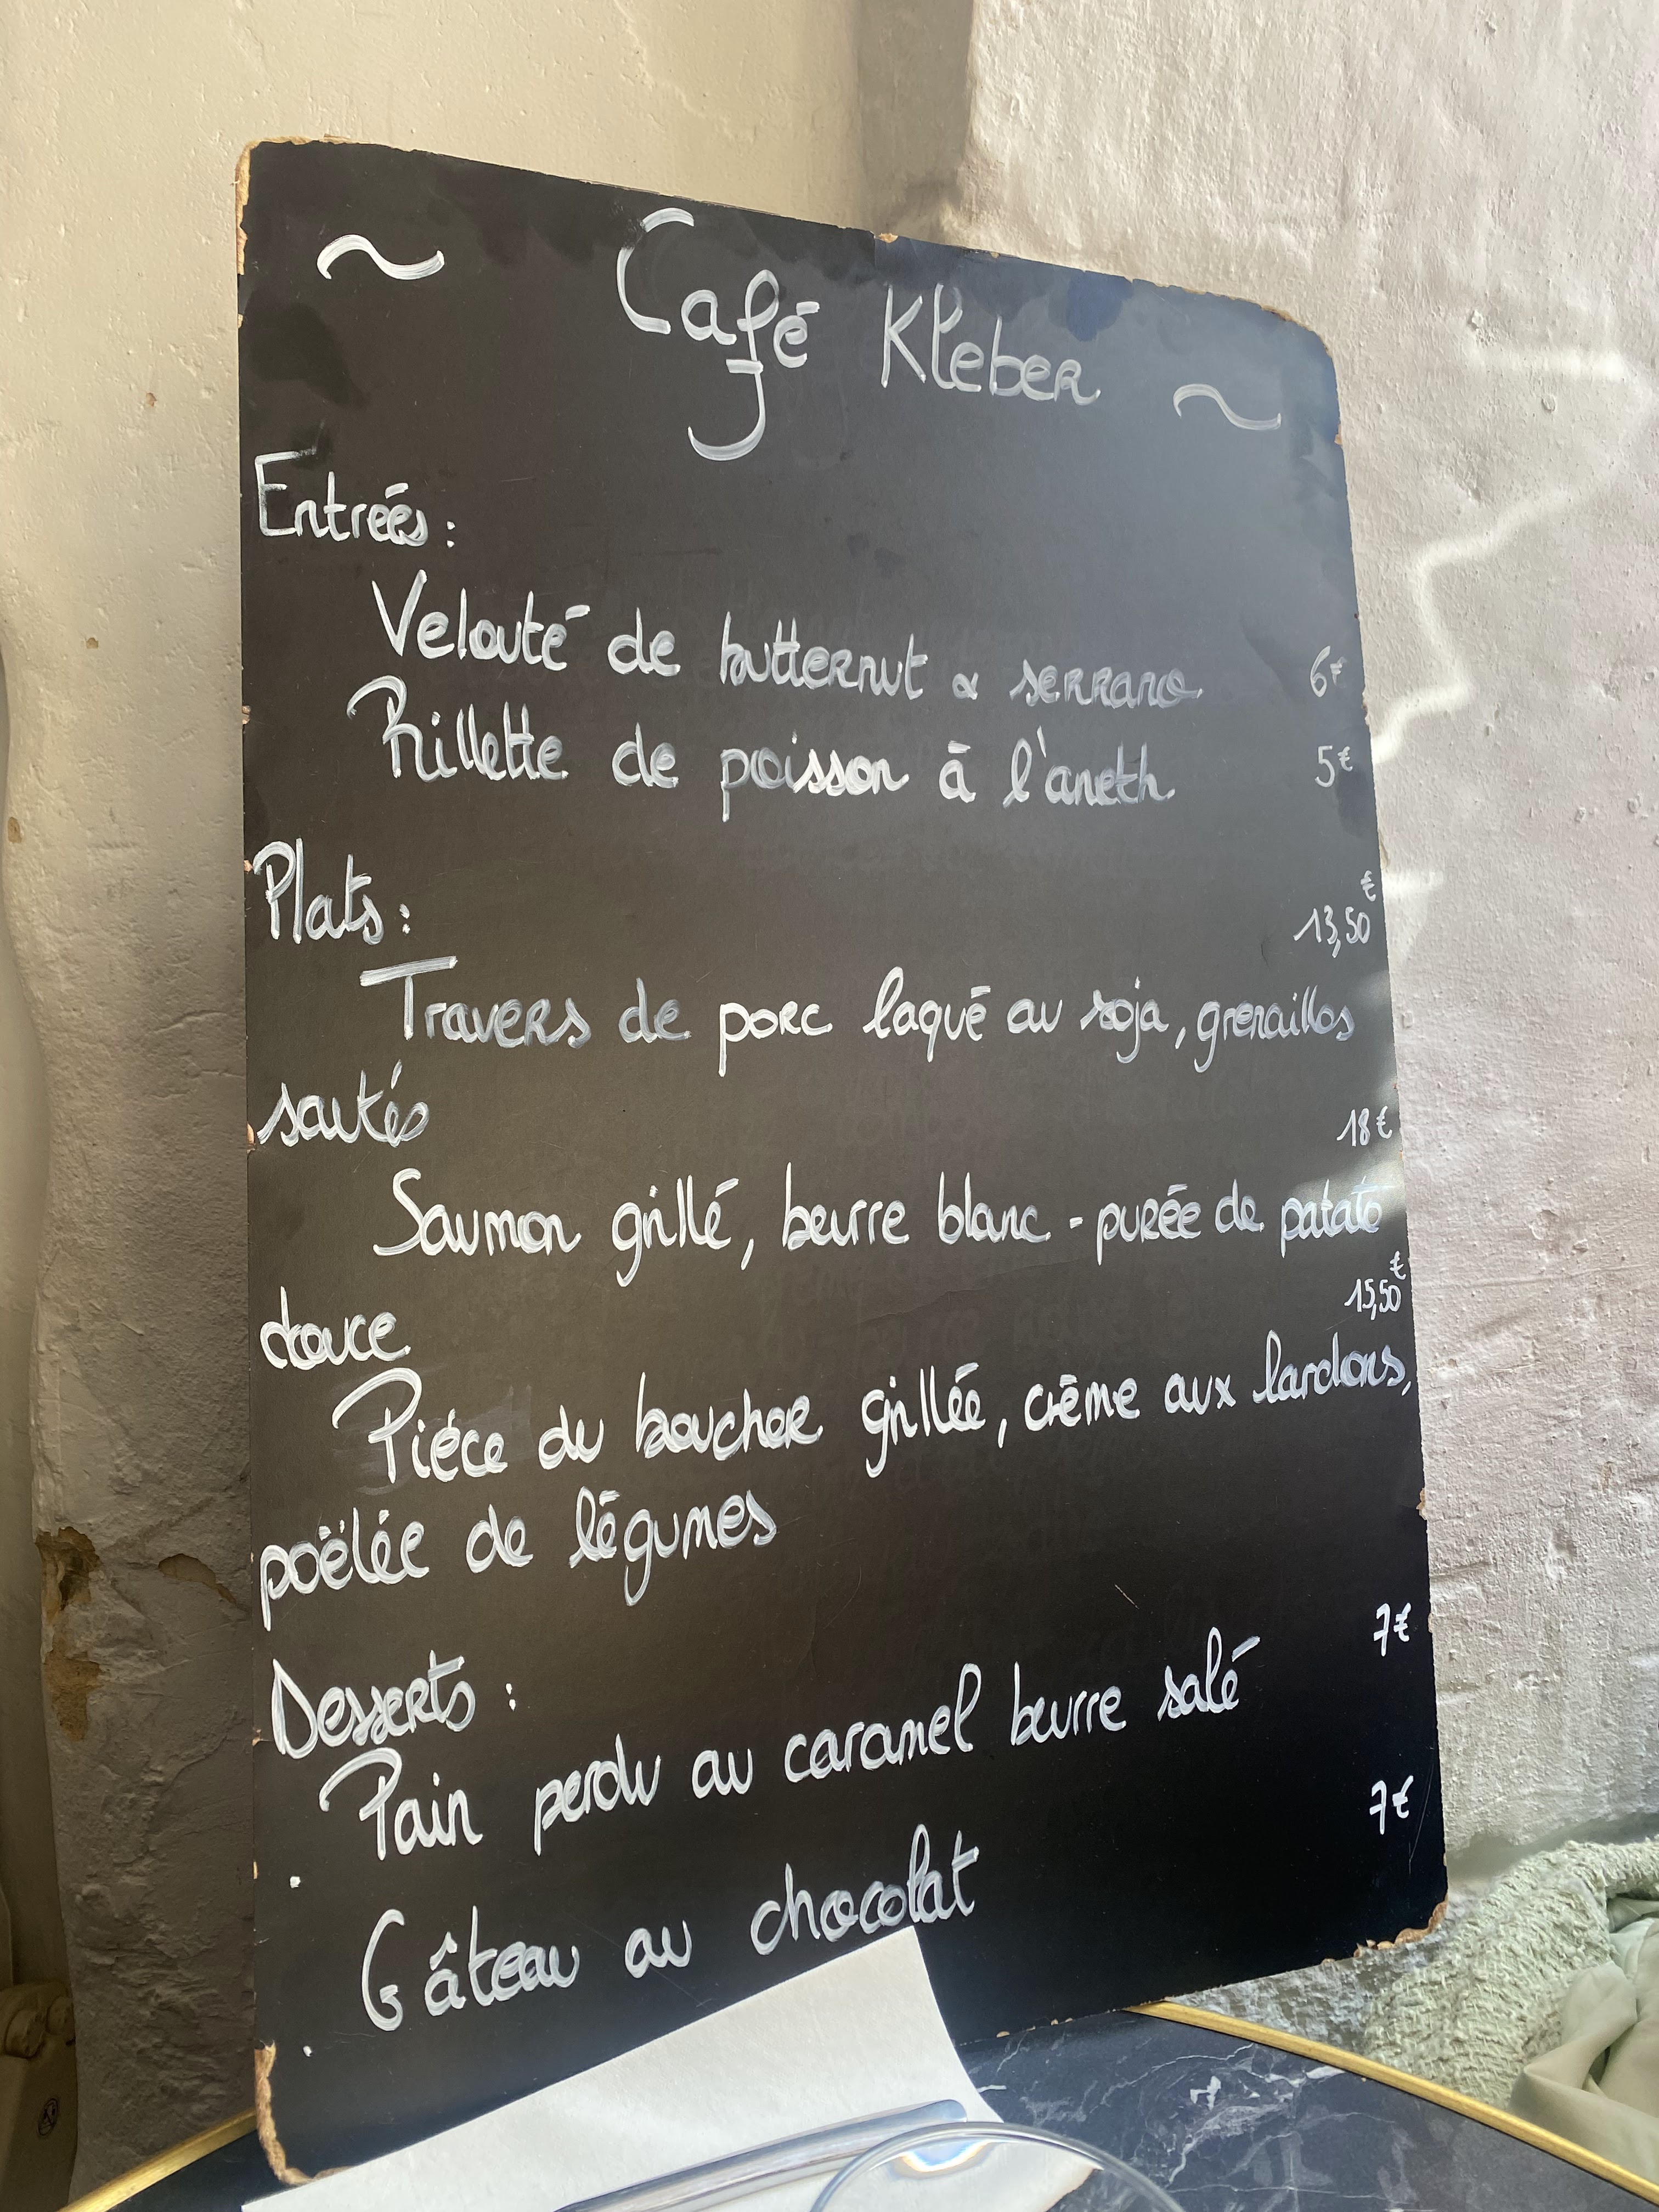 ~ Café Kleber ~
Entrées :
Velouté de butternut & serrano 6€
Rillette de poisson à l'aneth 5€
Plats :
13,50€
Travers de porc laqué au soja, grenailles
sautés
18€
Saumon grillé, beurre blanc - purée de patate
douce
15,50€
Piéce du boucher grillée, crème aux lardons,
poëlée de légumes
Desserts :
7€
Pain perdu au caramel beurre salé
7€
Gâteau au chocolat